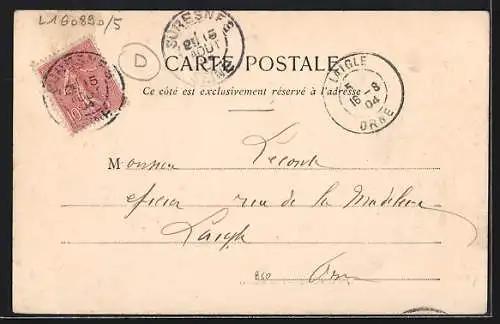 L160890/5
SURESNES
15
AOUT
D
CARTE POSTALE
LAIGLE
16 -8
04
ORNE
Ce côté est exclusivement réservé à l'adresse
Monsieur Lecomte
épicier rue de la Madeleine
Laigle
Orne